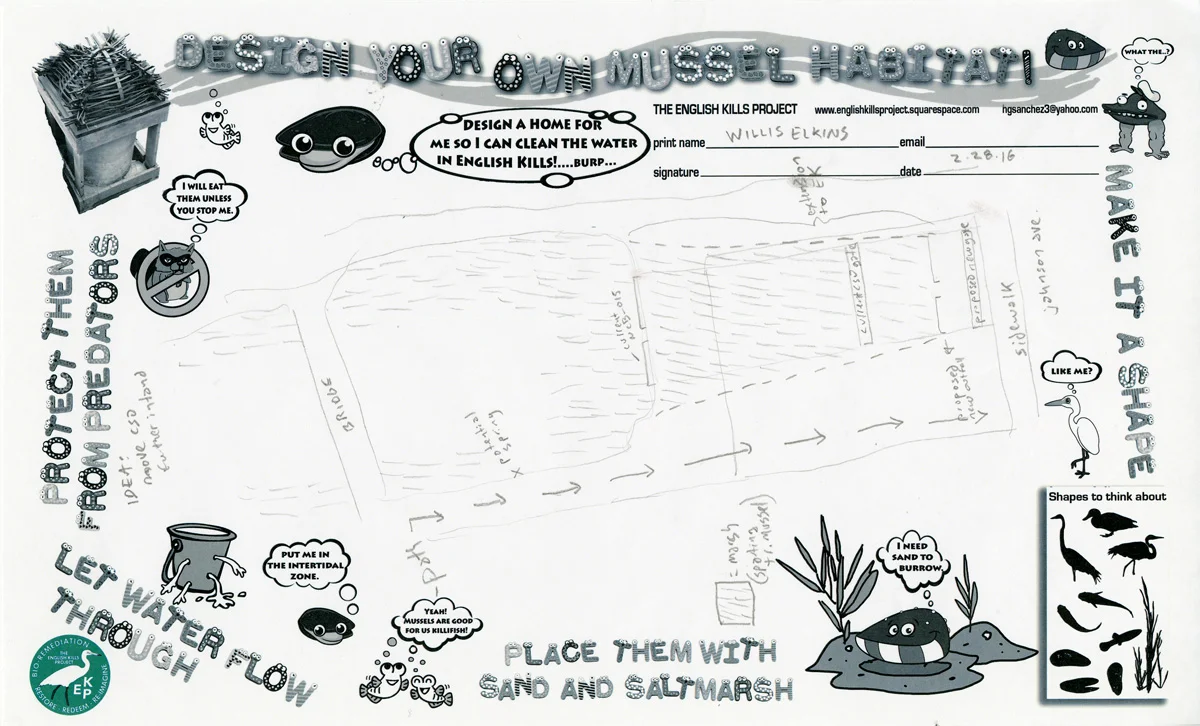 DESIGN YOUR OWN MUSSEL HABITAT!
WHAT THE..?
THE ENGLISH KILLS PROJECT www.englishkillsproject.squarespace.com hgsanchez3@yahoo.com
DESIGN A HOME FOR
ME SO I CAN CLEAN THE WATER
IN ENGLISH KILLS!....BURP...
print name WILLIS ELKINS email
signature date 2.28.16
I WILL EAT
THEM UNLESS
YOU STOP ME.
PROTECT THEM
FROM PREDATORS
MAKE IT A SHAPE
extension
to EK
current
NCB-015
current CSO gate
proposed new gate
sidewalk
Johnson ave.
BRIDGE
IDEA:
move CSO
further inland
x potential
spring
proposed
new outfall
LIKE ME?
path
= marsh
(spartina
+ r. mussel)
Shapes to think about
LET WATER FLOW
THROUGH
PUT ME IN
THE INTERTIDAL
ZONE.
YEAH!
MUSSELS ARE GOOD
FOR US KILLIFISH!
I NEED
SAND TO
BURROW.
PLACE THEM WITH
SAND AND SALTMARSH
BIO-REMEDIATION
THE
ENGLISH KILLS
PROJECT
EKP
RESTORE · REDEEM · RE-IMAGINE